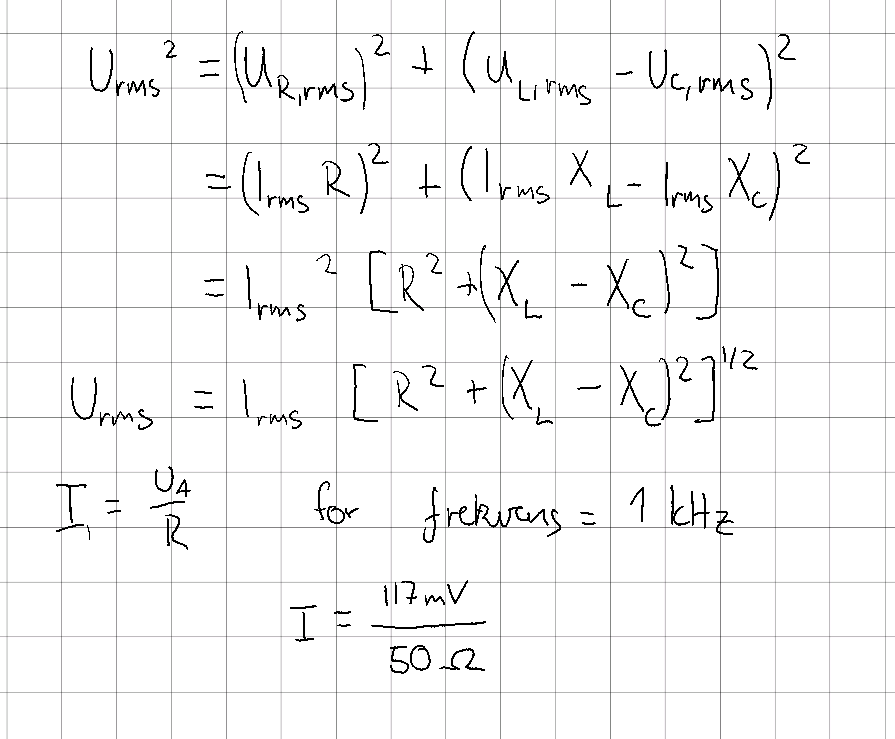 U_rms² = (U_R,rms)² + (U_L,rms - U_C,rms)²
= (I_rms R)² + (I_rms X_L - I_rms X_C)²
= I_rms² [R² + (X_L - X_C)²]
U_rms = I_rms [R² + (X_L - X_C)²]^1/2
I_1 = U_A/R for frekvens = 1 kHz
I = 117mV/50 Ω